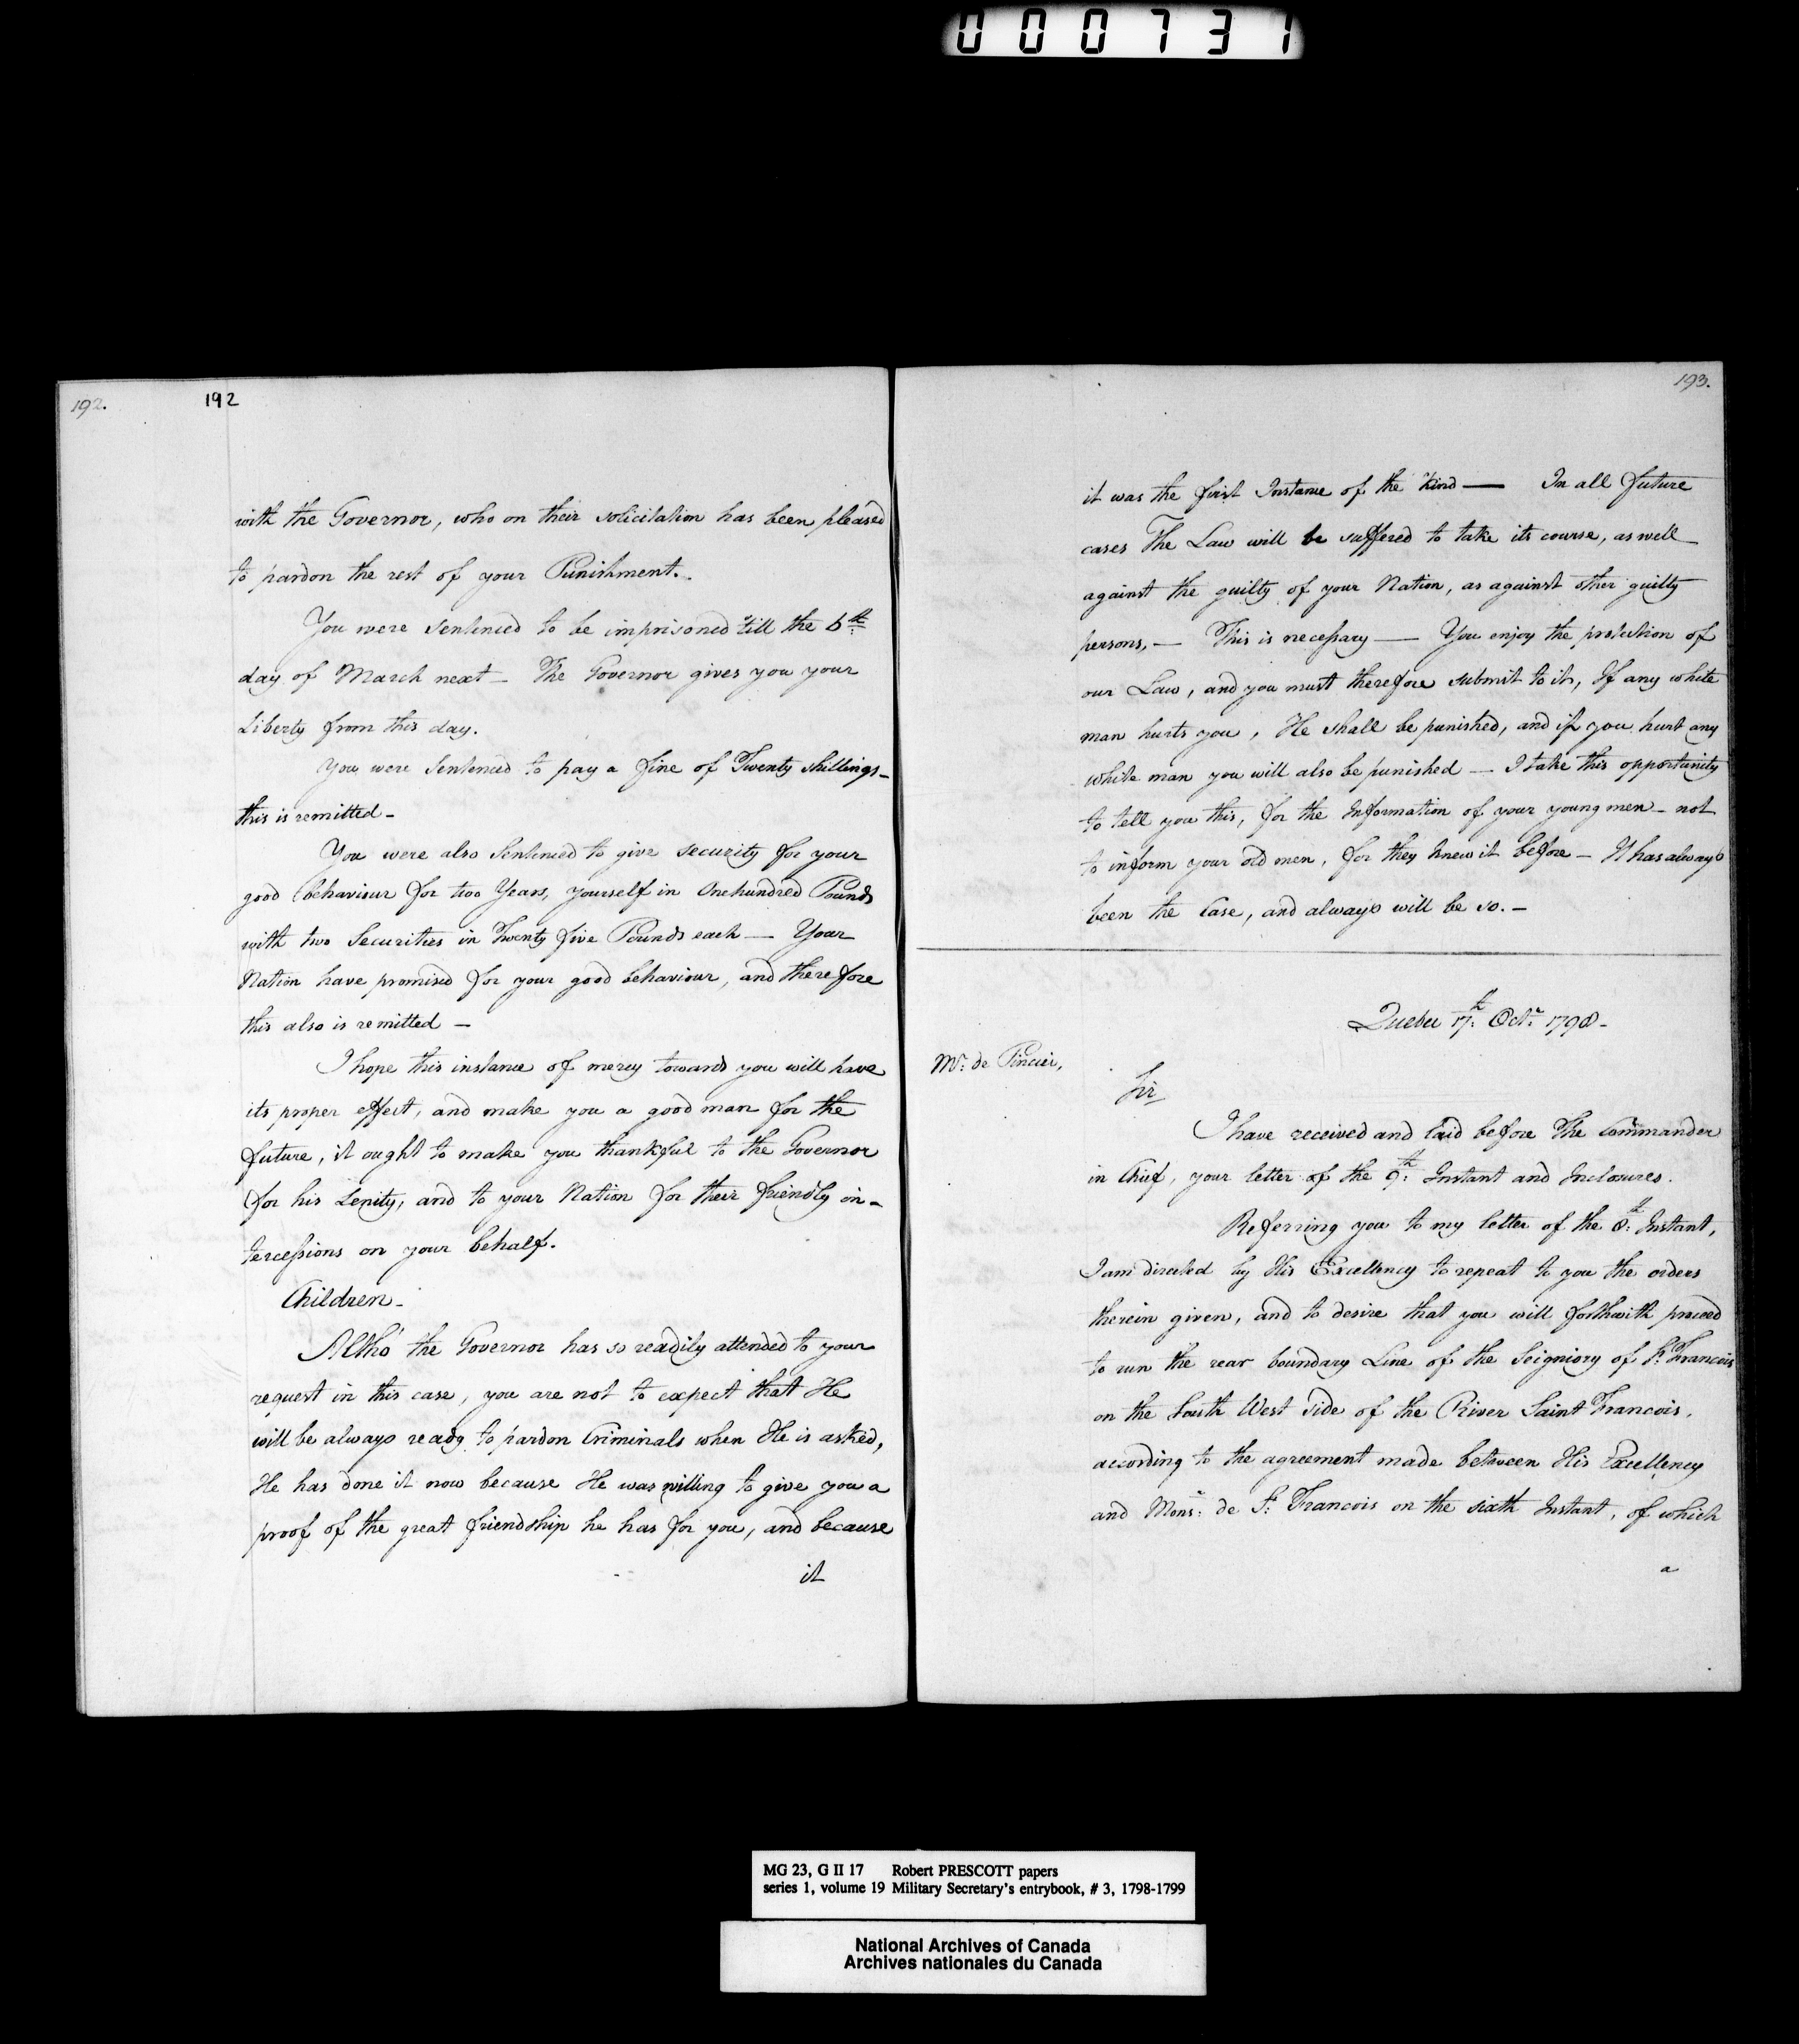 000731
192.
192
with the Governor, who on their solicitation has been pleased
to pardon the rest of your Punishment.
You were Sentenced to be imprisoned till the 6th
day of March next — The Governor gives you your
Liberty from this day.
You were Sentenced to pay a fine of Twenty shillings —
this is remitted —
You were also Sentenced to give security for your
good behaviour for two Years, yourself in One hundred Pounds
with two Securities in Twenty five Pounds each — Your
Nation have promised for your good behaviour, and therefore
this also is remitted —
I hope this instance of mercy towards you will have
its proper effect, and make you a good man for the
future, it ought to make you thankful to the Governor
for his Lenity, and to your Nation for their friendly in-
tercessions on your behalf.
Children —
Altho' the Governor has so readily attended to your
request in this case, you are not to expect that He
will be always ready to pardon Criminals when He is asked,
He has done it now because He was willing to give you a
proof of the great friendship he has for you, and because
it
193.
it was the first Instance of the kind — In all future
cases The Law will be suffered to take its course, as well
against the guilty of your Nation, as against other guilty
persons, — This is necessary — You enjoy the protection of
our Law, and you must therefore submit to it, If any white
man hurts you, He shall be punished, and if you hurt any
white man you will also be punished — I take this opportunity
to tell you this, for the Information of your young men — not
to inform your old men, for they knew it before — It has always
been the Case, and always will be so. —
Quebec 17th Octr 1798 —
Mr: de Pincier,
Sir
I have received and laid before The Commander
in Chief, your letter of the 9th Instant and Inclosures.
Referring you to my letter of the 8th Instant,
I am directed by His Excellency to repeat to you the orders
therein given, and to desire that you will forthwith proceed
to run the rear boundary Line of the Seigniory of St Francois
on the South West Side of the River Saint Francois,
according to the agreement made between His Excellency
and Monsr: de St: Francois on the sixth Instant, of which
a
MG 23, G II 17 Robert PRESCOTT papers
series 1, volume 19 Military Secretary's entrybook, # 3, 1798-1799
National Archives of Canada
Archives nationales du Canada